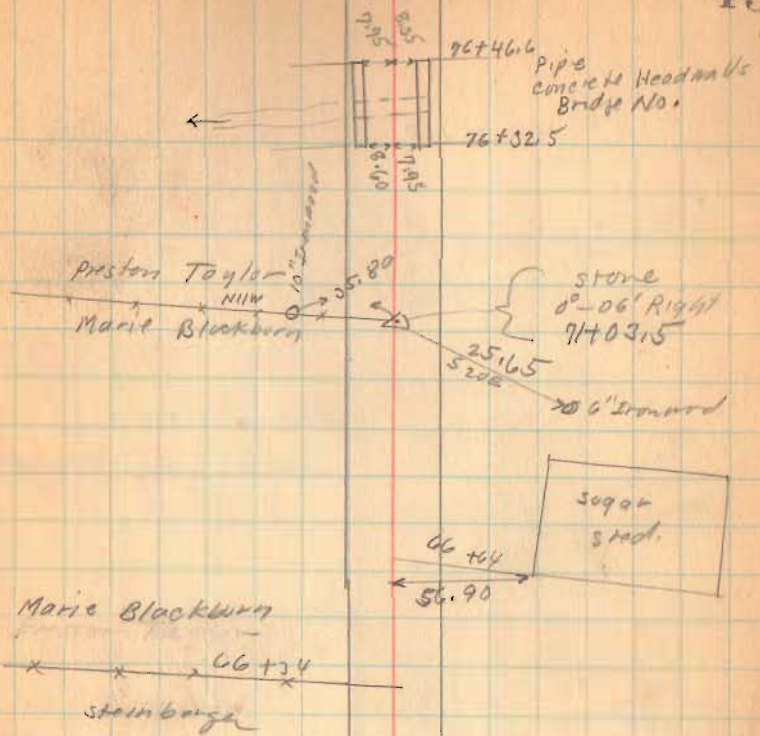 7.95 8.35
76+46.6
Pipe
Concrete Headwalls
Bridge No.
76+32.5
8.60 7.95
10" Ironwood
Preston Taylor
N11W
35.80
Marie Blackburn
stone
0°-06' Right
71+03.5
25.65
S20E
6" Ironwood
sugar
shed.
66+64
56.90
Marie Blackburn
66+34
Steinbarger